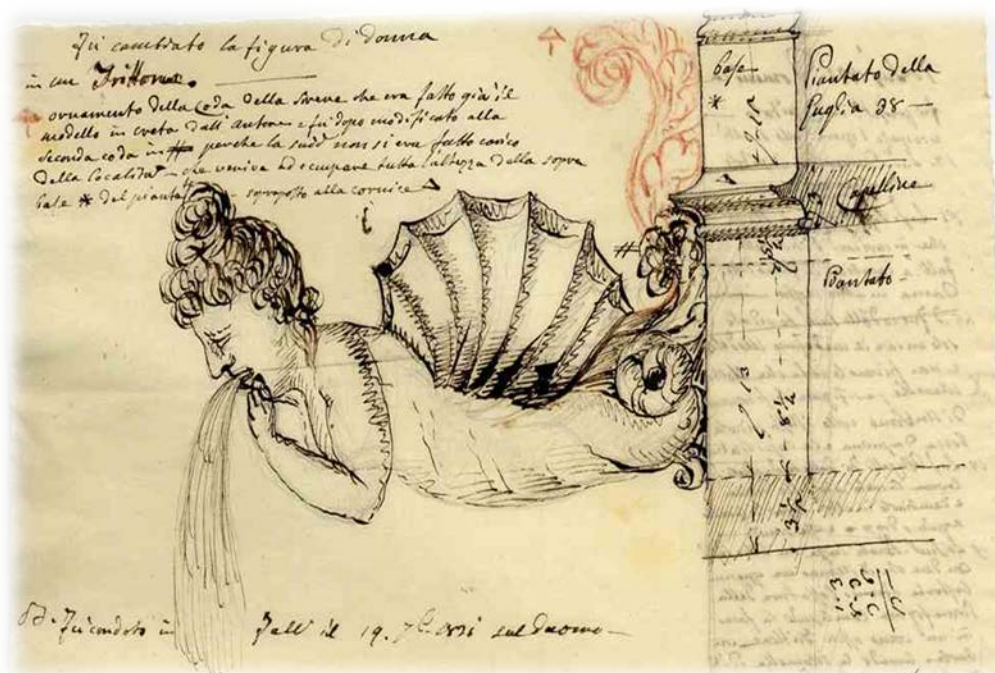 Fu cambiato la figura di donna
in un Trittone.
ornamento della coda della sirena che era fatto già il
modello in creta dall' autore e fu dopo modificato alla
seconda coda in # perche la sudd non si era fatto carico
della Localita – che veniva ad occupare tutta l'altezza della sopra
base * del sopraposto alla cornice
base
*
Piantato della
Guglia 38 —
Capellino
#
Piantato –
Fu condoto in il 19. sul Duomo —